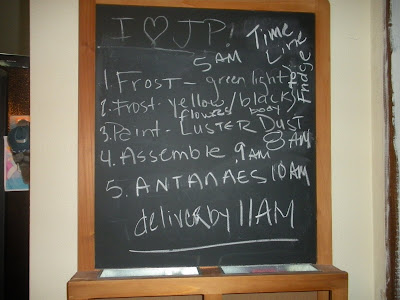 I ♡ JP!
Time Line
5 AM
1. FROST – green light
2. Frost - yellow/black
flowers body
3. Paint - LUSTER DUST
8 AM
4. ASSEMBLE 9AM
5. ANTANAES 10AM
deliver by 11AM
Fridge